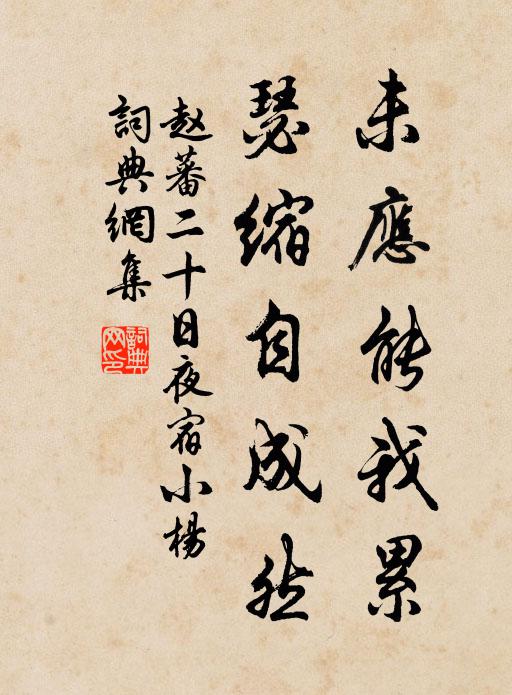 未應能我累
瑟縮自成然
赵蕃二十日夜宿小楊
詞典網集
詞典网印